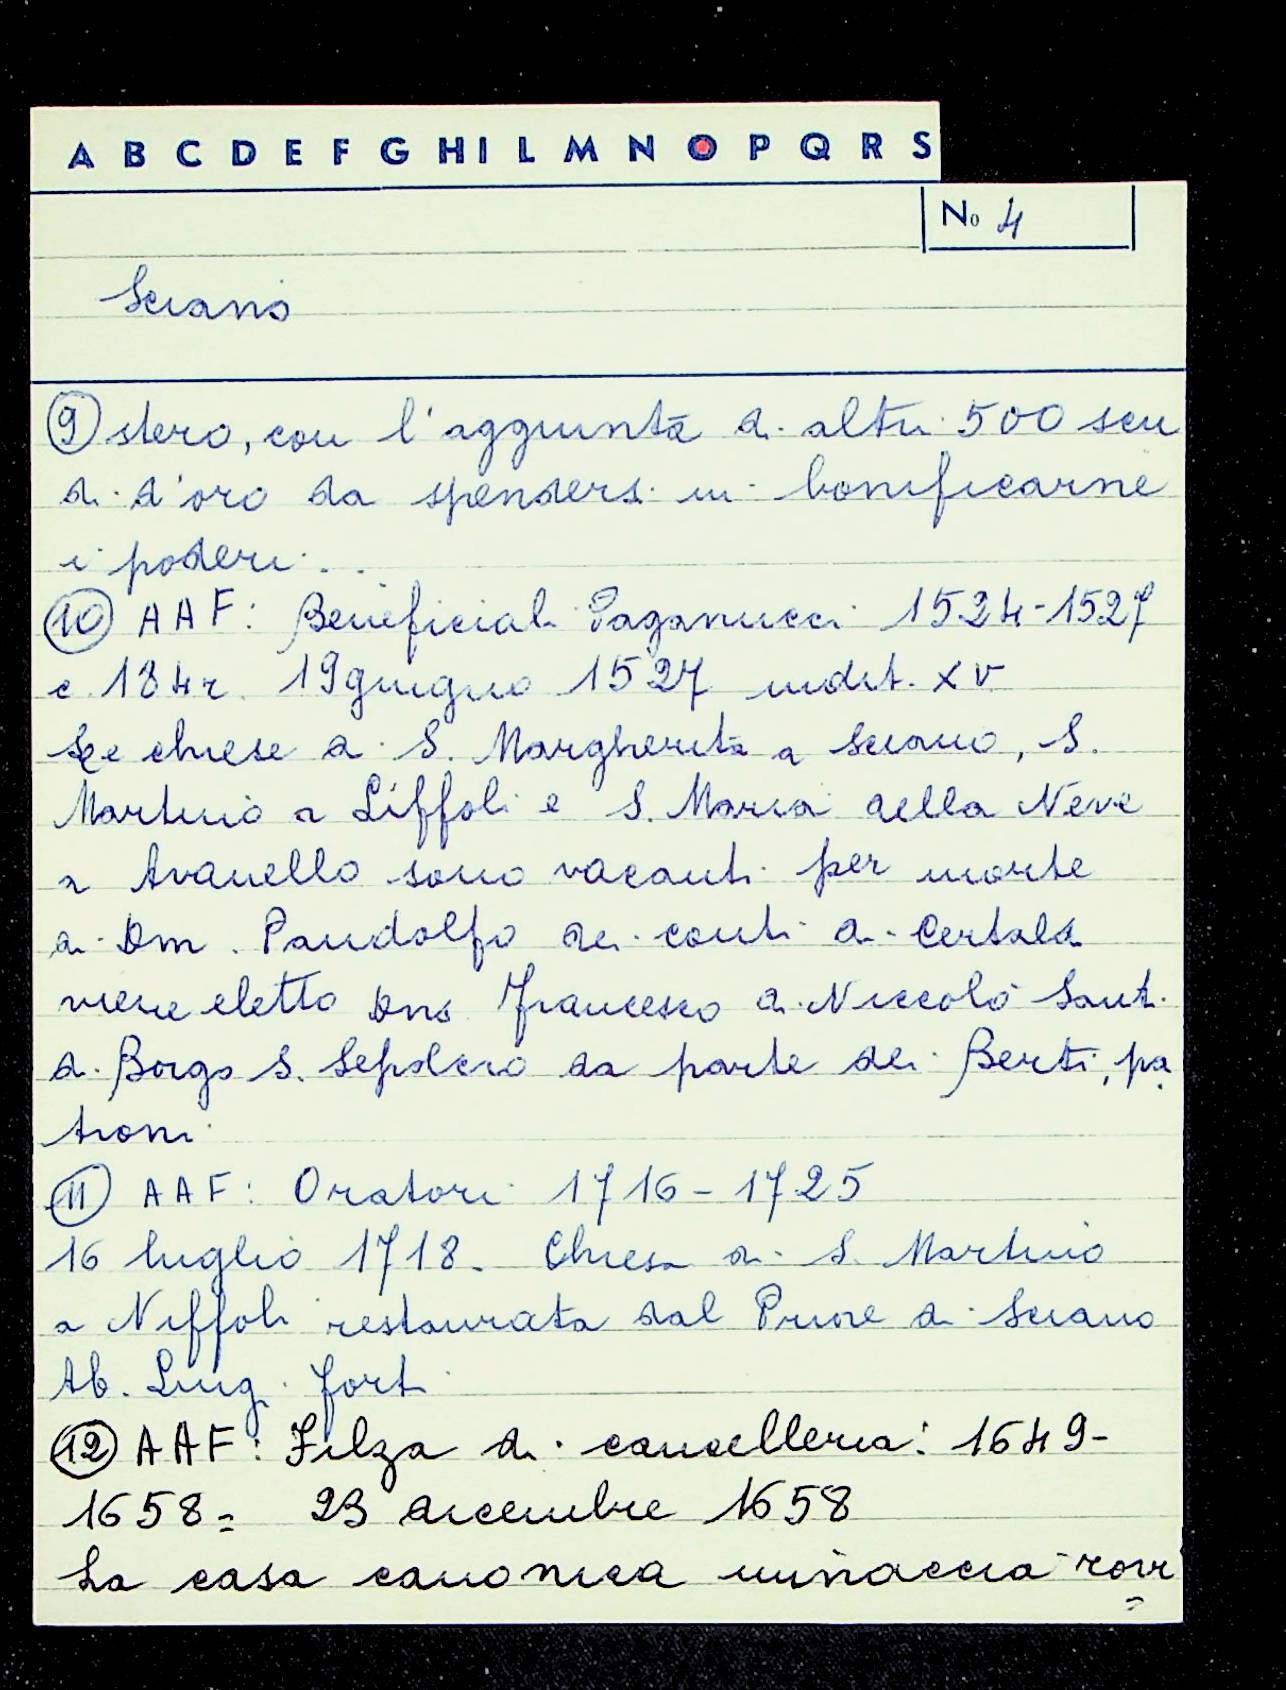 A B C D E F G H I L M N O P Q R S
No 4
Sciano
9 stero, con l'aggiunta di altri 500 scu
di d'oro da spendersi in bonificarne
i poderi ..
10 AAF: Beneficiali Paganucci 1524-1527
c. 184r. 19 giugno 1527 indit. XV
Le chiese di S. Margherita a Sciano, S.
Martino a Liffoli e S. Maria della Neve
a Avanello sono vacanti per morte
di Dm. Pandolfo dei conti di Certald.
viene eletto Dns Francesco di Niccolò Santi
di Borgo S. Sepolcro da parte dei Berti, pa
troni
11 AAF: Oratori 1716-1725
16 luglio 1718. Chiesa di S. Martino
a Niffoli restaurata dal Priore di Sciano
Ab. Luig. Forti
12 AAF: Filza di cancelleria: 1649-
1658= 23 dicembre 1658
La casa canonica minaccia rovi=